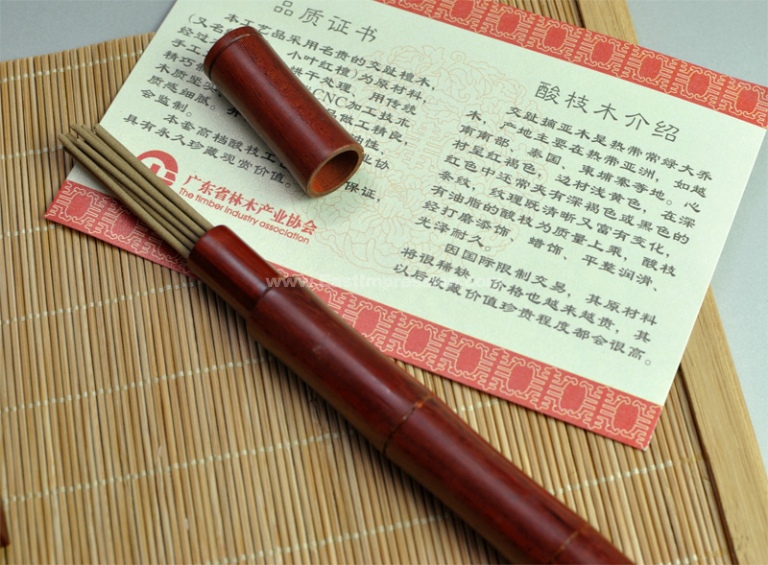 品质证书
本工艺品采用名贵的交趾檀木,
(又名
小叶红檀)为原材料,
经过
烘干处理, 用传统
手工
CNC加工技术
精巧
做工精良,
木质坚实
油性
质感细腻。
业协
会监制。
本套高档酸枝工
保证,
具有永久珍藏现赏价值。
广东省林木产业协会
The timber industry association
酸枝木介绍
交趾摘亚木是热带常绿大乔
木、产地主要在热带亚洲, 如越
南南部、泰国、柬埔寨等地。心
材呈红褐色、边材浅黄色, 在深
红色中还常夹有深褐色或黑色的
条纹, 纹理既清晰又富有变化,
有油脂的酸枝为质量上乘, 酸枝
经打磨漆饰、蜡饰、平整润滑、
光泽耐久。
因国际限制交易, 其原材料
将很稀缺、价格也越来越贵, 其
以后收藏价值珍贵程度都会很高。